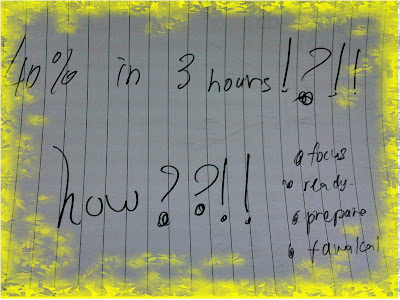 40% in 3 hours!?!!
how??!!
focus
ready.
prepare
tawakal